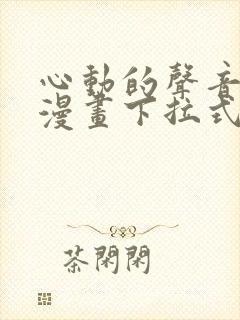 心動的聲音
漫畫下拉式
茶閑閑